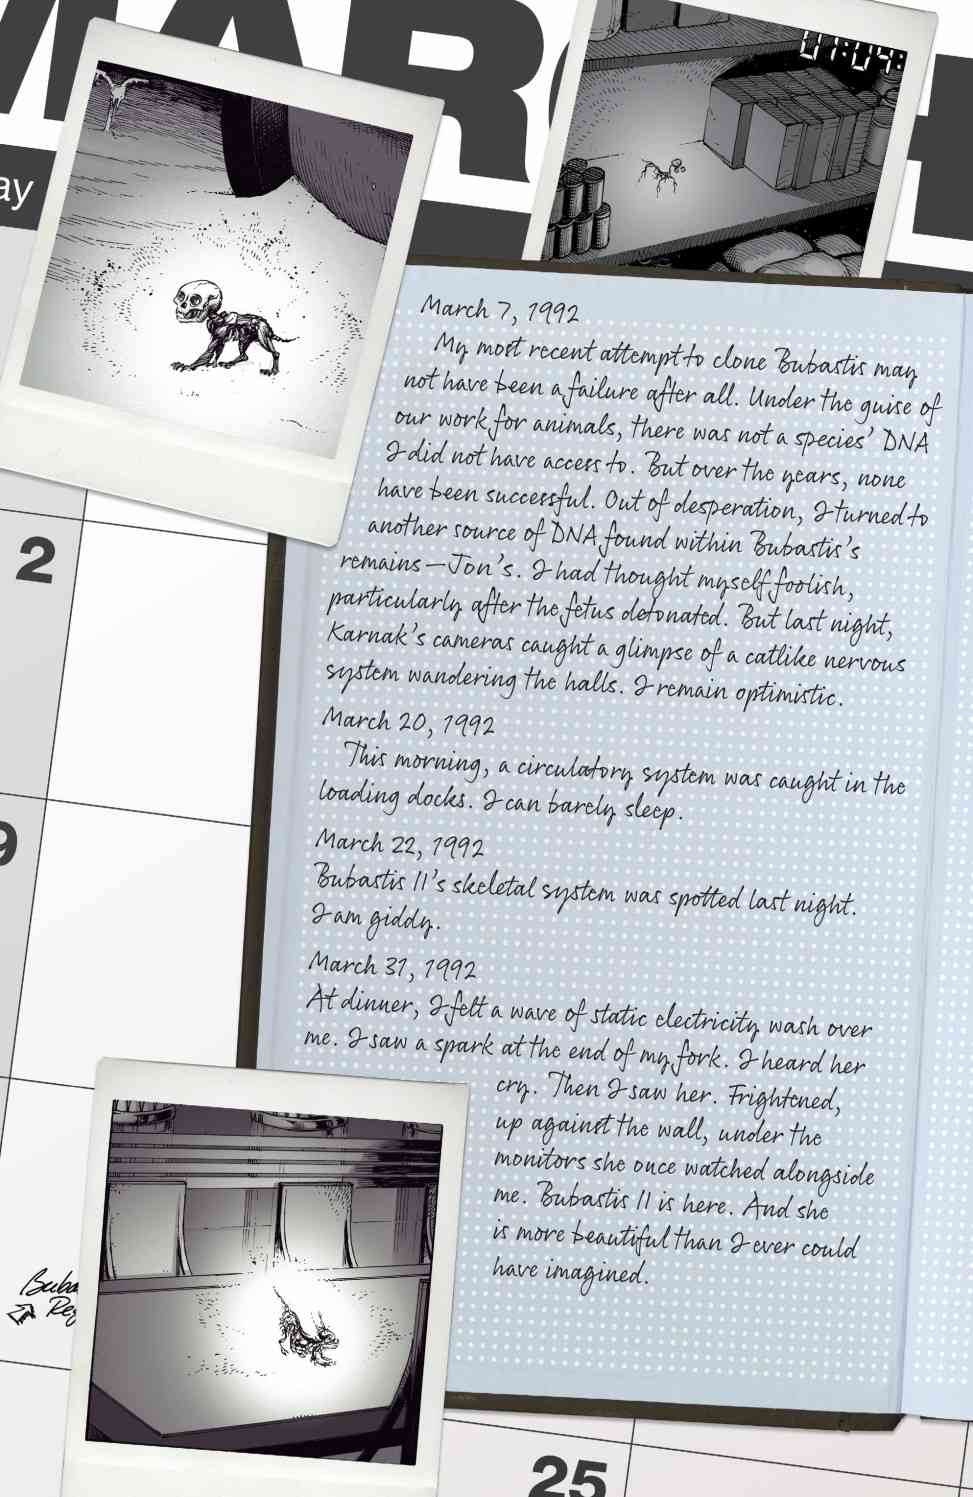 MARCH
ay
01:04:
2
9
25
March 7, 1992
My most recent attempt to clone Bubastis may
not have been a failure after all. Under the guise of
our work for animals, there was not a species' DNA
I did not have access to. But over the years, none
have been successful. Out of desperation, I turned to
another source of DNA found within Bubastis's
remains—Jon's. I had thought myself foolish,
particularly after the fetus detonated. But last night,
Karnak's cameras caught a glimpse of a catlike nervous
system wandering the halls. I remain optimistic.
March 20, 1992
This morning, a circulatory system was caught in the
loading docks. I can barely sleep.
March 22, 1992
Bubastis II's skeletal system was spotted last night.
I am giddy.
March 31, 1992
At dinner, I felt a wave of static electricity wash over
me. I saw a spark at the end of my fork. I heard her
cry. Then I saw her. Frightened,
up against the wall, under the
monitors she once watched alongside
me. Bubastis II is here. And she
is more beautiful than I ever could
have imagined.